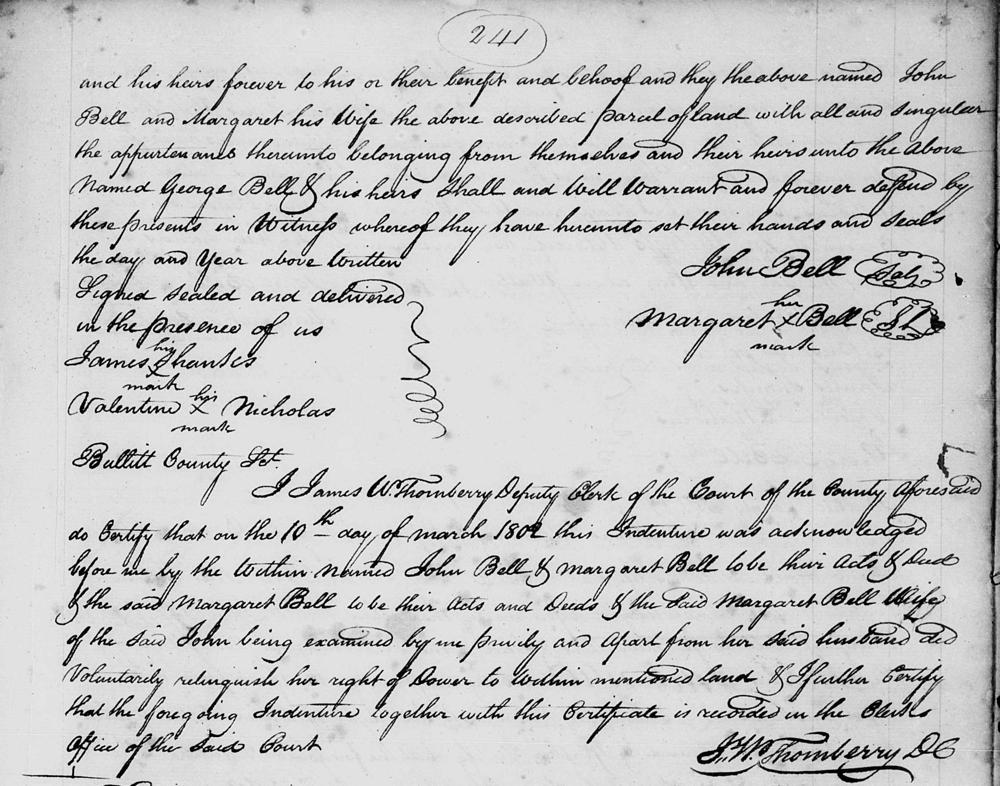 241
and his heirs forever to his or their benefit and behoof and they the above named John
Bell and Margaret his Wife the above described parcel of land with all and Singular
the appurtenances thereunto belonging from themselves and their heirs unto the above
Named George Bell & his heirs Shall and Will Warrant and forever defend by
these presents in Witness whereof they have hereunto set their hands and Seals
the day and Year above Written
John Bell Seal
Signed Sealed and delivered
in the presence of us
her
Margaret x Bell SL
mark
his
James x Shanks
mark
his
Valentine x Nicholas
mark
Bullitt County Sct.
I James W. Thornberry Deputy Clerk of the Court of the County Aforesaid
do Certify that on the 10th day of march 1802 this Indenture was acknowledged
before me by the Within Named John Bell & Margaret Bell to be their Acts & Deed
& the said Margaret Bell to be their Acts and Deeds & the Said Margaret Bell Wife
of the Said John being examined by me privily and Apart from her Said husband did
Voluntarily relinquish her right of Dower to Within mentioned land & I further Certify
that the foregoing Indenture together with this Certificate is recorded in the Clerks
Office of the Said Court
J. W. Thornberry DC